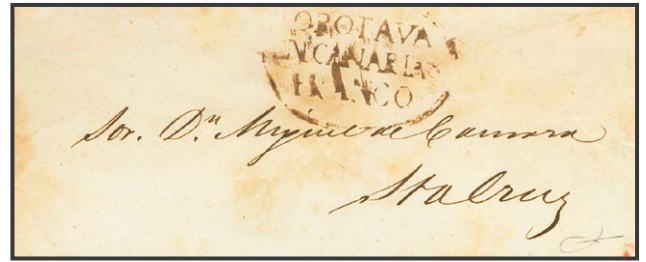 OROTAVA
YS CANARIAS
FRANCO
Sor. Dn. Miguel de Camara
Sta Cruz